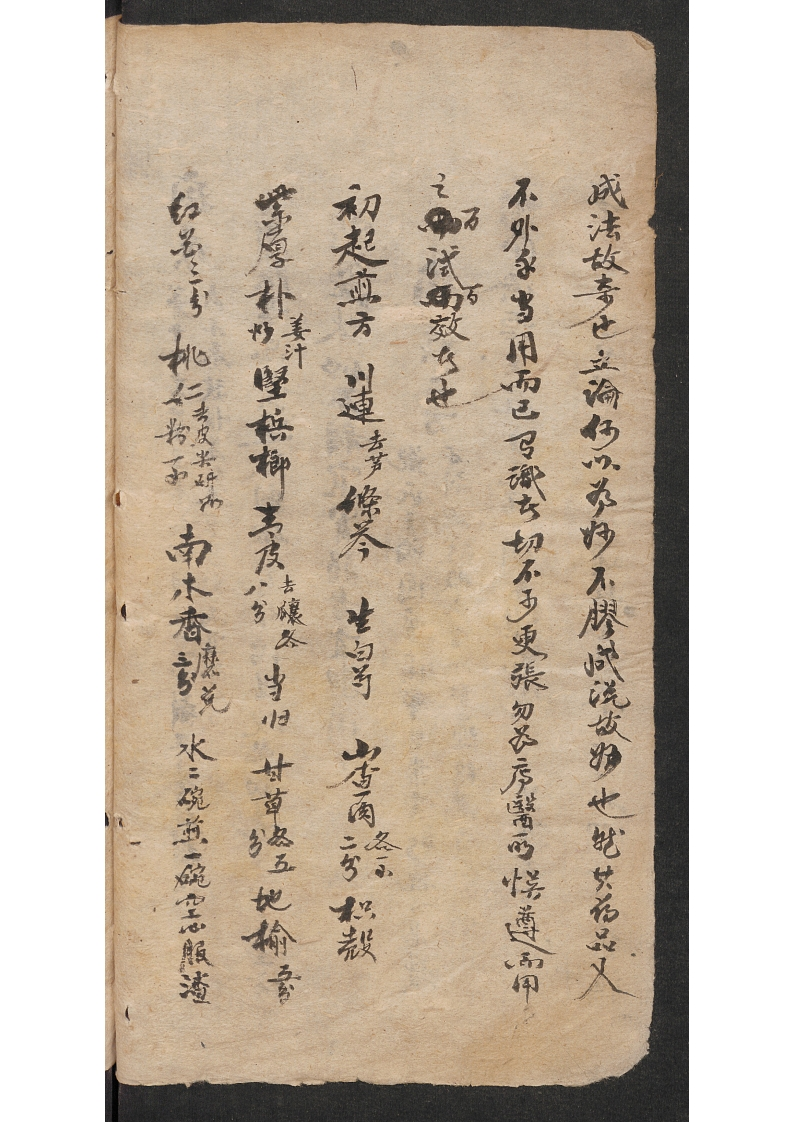 成法故奇也立論何以為妙不膠成說故妙也然其药品又
不外乎当用而已有識者切不可更張勿為庸醫所悞遵而用
之万試百效者也
初起煎方 川連去芦 條芩 生白芍 山查肉各一不二分 枳殼
紫厚朴炒姜汁 堅梹榔 青皮去穰各八分 当归 甘草各五分 地榆五分
红花三分 桃仁去皮尖研如粉一不 南木香磨兑二分 水二碗煎一碗空心服渣